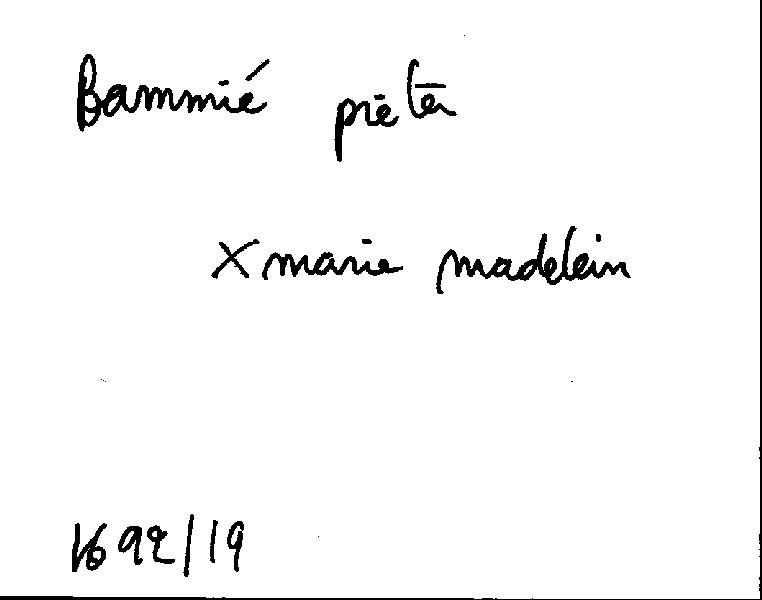 Bammié piéter
X marie madelein
1692/19